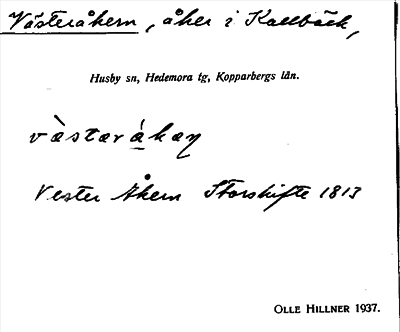 Västeråkern, åker i Kallbäck,
Husby sn, Hedemora tg, Kopparbergs län.
vàstarákaɳ
Vester Åkern Storskifte 1813
OLLE HILLNER 1937.